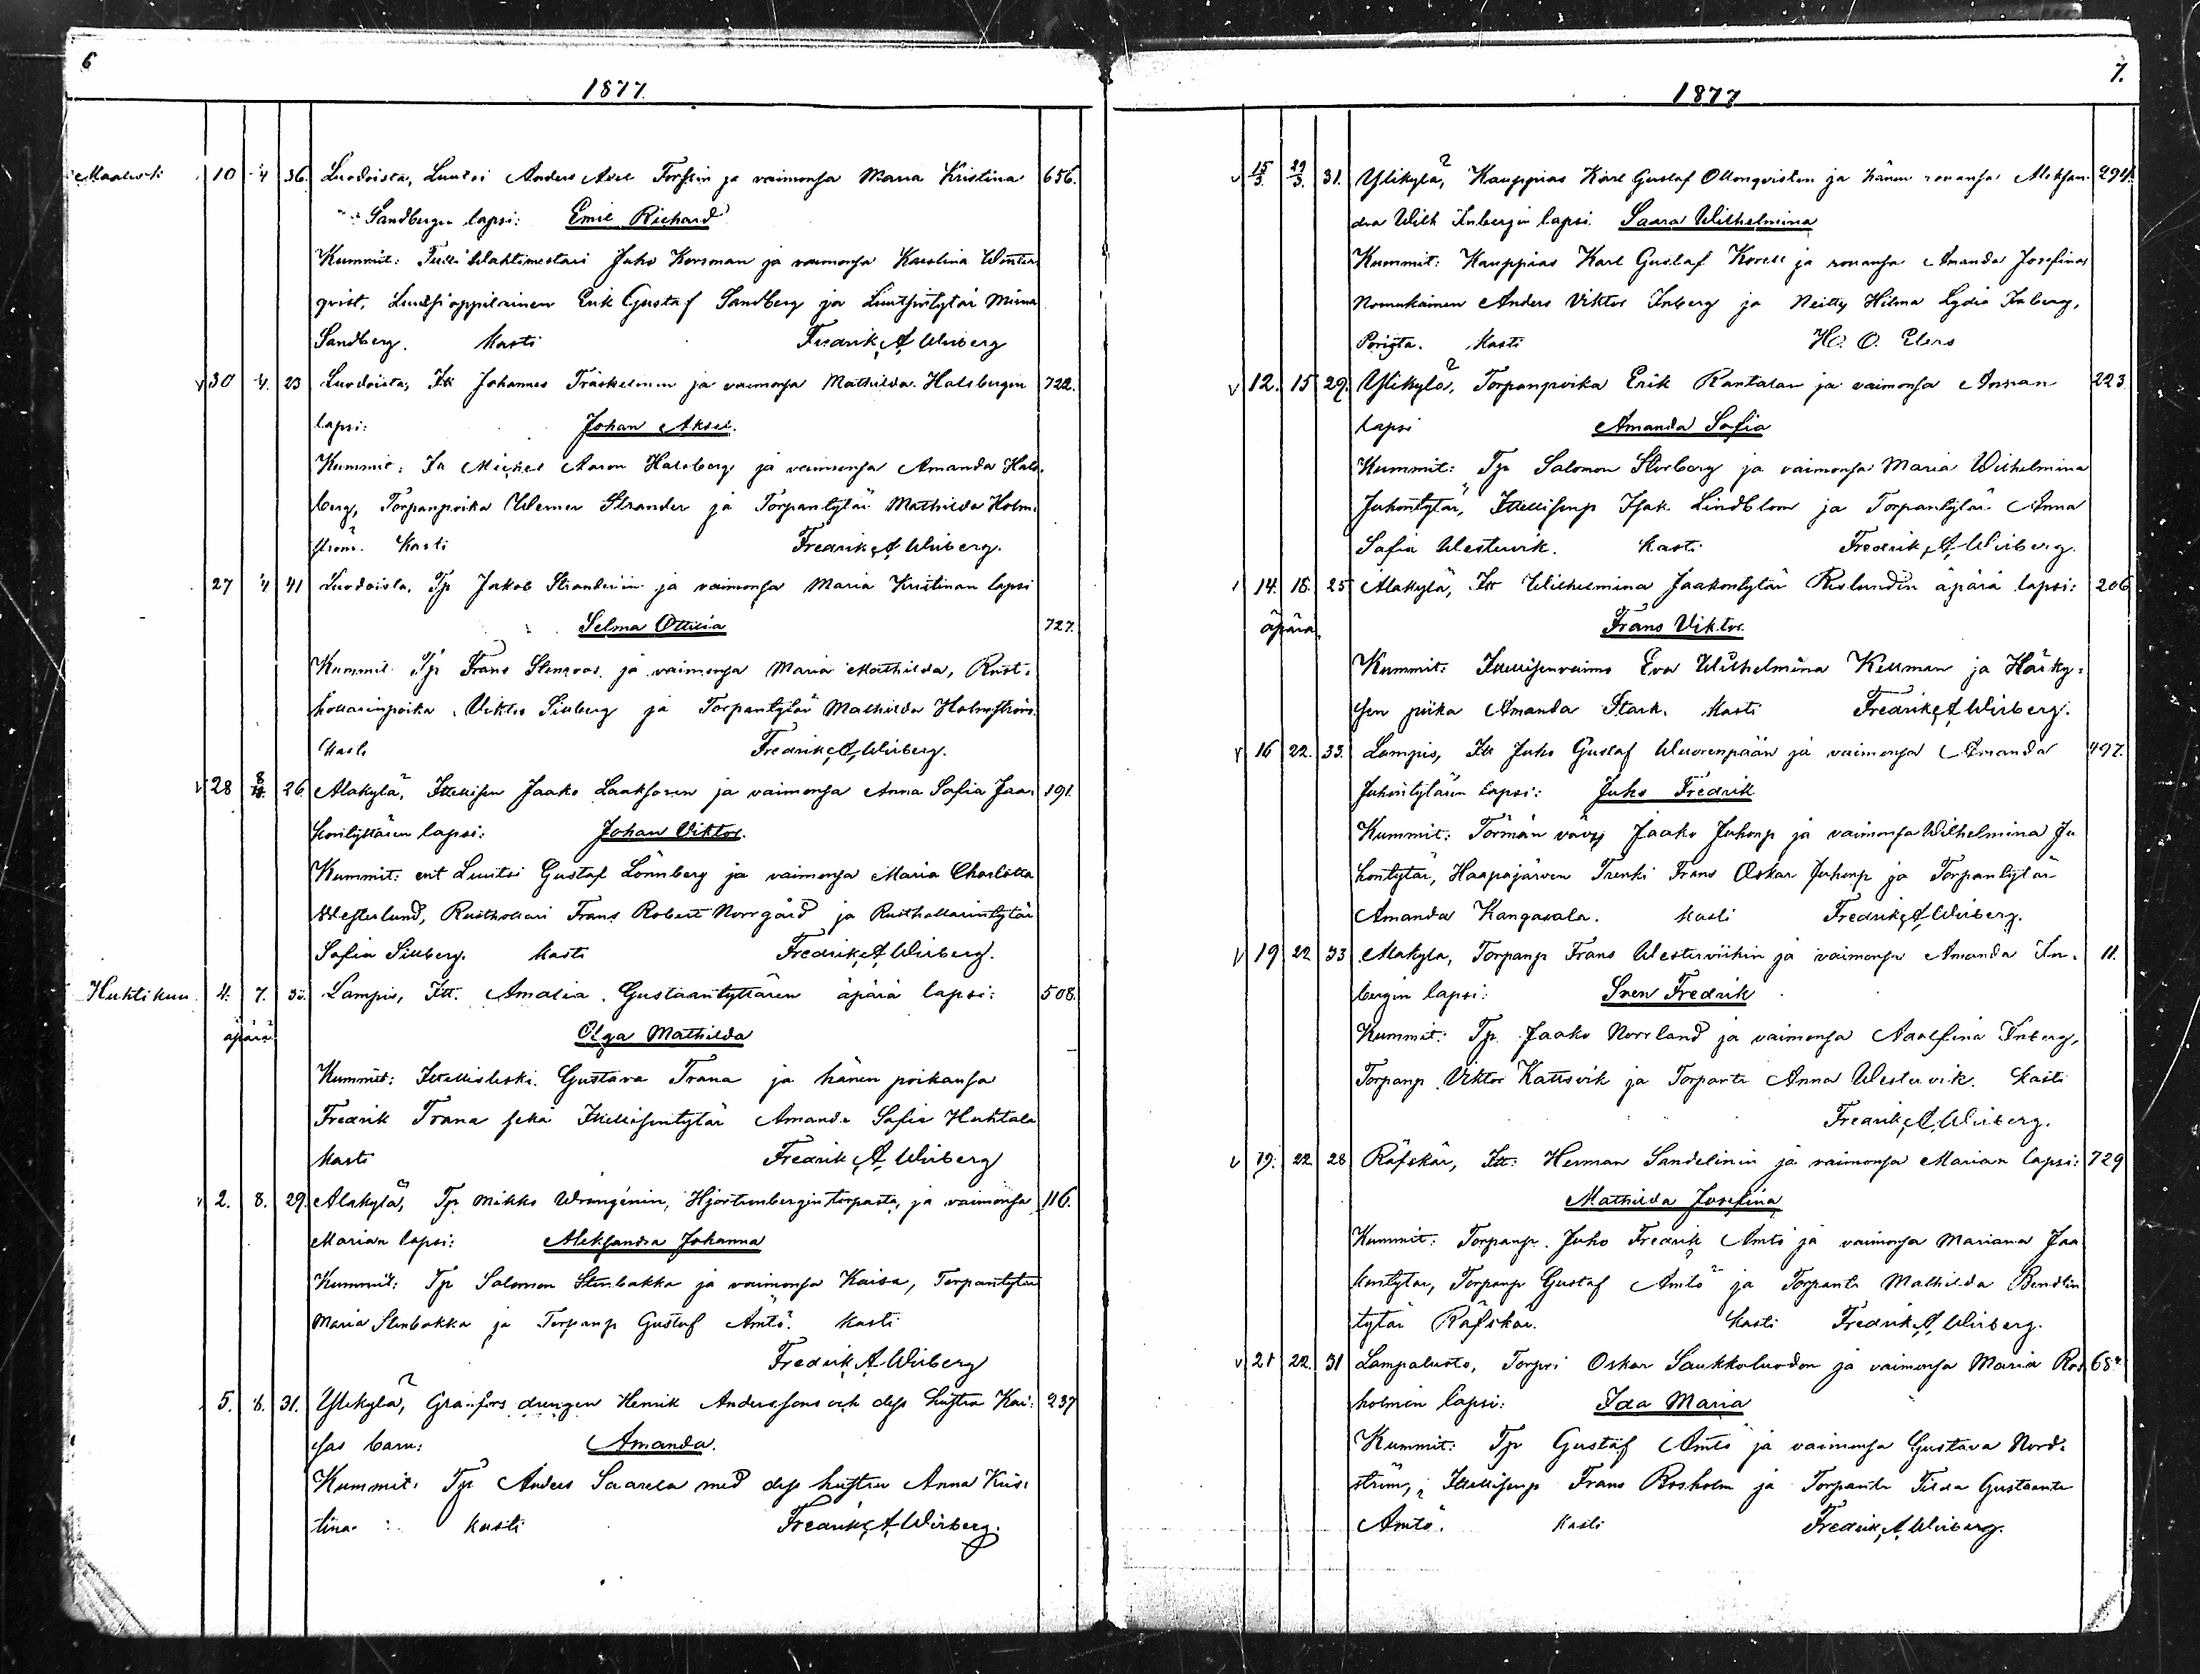 6
1877.
Maalisk. 10 4 36. Luodoista, Luutsi Anders Axel Forsstin ja vaimonsa Maria Kristina 656.
Sandbergin lapsi: Emil Richard
Kummit: Tulli Wahtimestari Juho Korsman ja vaimonsa Karolina Winter
qvist, Luutsioppilainen Erik Gustaf Sandberg ja Luutsintytär Miina
Sandberg. kasti Fredrik A Wirberg
v 30 4. 23 Luodoista, Itt Johannes Träskelinin ja vaimonsa Mathilda Halsbergin 722.
lapsi: Johan Aksel.
Kummit: Itt Michel Aaron Halsberg ja vaimonsa Amanda Hals-
berg, Torpanpoika Werner Strander ja Torpantytär Mathilda Holm-
ström. Kasti Fredrik A Wirberg.
27 4 41 Luodoista, Tp Jakob Stranderin ja vaimonsa Maria Kristinan lapsi
Selma Ottilia 727.
Kummit Tp Frans Stenroos ja vaimonsa Maria Mathilda, Rust-
hollarinpoika Viktor Sillberg ja Torpantytär Mathilda Holmström.
Kasti Fredrik A Wirberg.
v 28 8/4. 26. Alakylä, Itsellisen Jaako Laaksosen ja vaimonsa Anna Sofia Jaa- 191.
kontyttären lapsi: Johan Viktor.
Kummit: ent Luutsi Gustaf Lönnberg ja vaimonsa Maria Charlotta
Westerlund, Rusthollari Frans Robert Norrgård ja Rusthollarintytär
Sofia Sillberg. kasti Fredrik A Wirberg.
Huhtikuu. 4. 7. 35. Lampis, Itt. Amalia Gustaantyttären äpärä lapsi: 508.
äpärä Olga Mathilda
Kummit: Itsellisleski Gustava Trana ja hänen poikansa
Fredrik Trana sekä Itsellisentytär Amanda Sofia Huhtala
Kasti Fredrik A Wirberg
v 2. 8. 29. Alakylä, Tp. Mikko Wrangénin, Hjortenbergin torpasta, ja vaimonsa 116.
Marian lapsi: Aleksandra Johanna
Kummit: Tp Salomon Stenbakka ja vaimonsa Kaisa, Torpantytär
Maria Stenbakka ja Torpanp Gustaf Amtö. kasti
Fredrik A Wirberg
5. 8. 31. Ylikylä, Granfors drengen Henrik Anderssons och dess hustru Kai- 237
sas barn: Amanda.
Kummit: Tp Anders Saarela med dess hustru Anna Kris-
tina. kasti Fredrik A Wirberg.
7.
1877
v 15/3. 29/3. 31. Ylikylä, Kauppias Karl Gustaf Ollonqvistin ja hänen rouvansa Aleksan-
dra Wilh Inbergin lapsi. Saara Wilhelmina
Kummit: Kauppias Karl Gustaf Korell ja rouvansa Amanda Josefina
Nuorukainen Anders Viktor Inberg ja Neitty Hilma Lydia Inberg,
Porista. kasti H. O. Elers
v 12. 15 29. Ylikylä, Torpanpoika Erik Rantalan ja vaimonsa Annan 223
lapsi Amanda Sofia
Kummit: Tp Salomon Storberg ja vaimonsa Maria Wilhelmina
Juhontytär, Itsellisenp Isak Lindblom ja Torpantytär Anna
Sofia Westervik. kasti Fredrik A Wirberg.
14. 16. 25 Alakylä, Itt Wilhelmina Jaakontytär Roslundin äpärä lapsi: 206
äpärä Frans Viktor
Kummit: Itsellisenvaimo Eva Wilhelmina Kellman ja Härky-
sen piika Amanda Stark. kasti Fredrik A Wirberg.
v 16 22. 33. Lampis, Itt Juho Gustaf Wuorenpään ja vaimonsa Amanda 497.
Juhontytären lapsi: Juho Fredrik
Kummit: Törmän vävy Jaako Juhonp ja vaimonsa Wilhelmina Ju
hontytär, Haapajärven Trenki Frans Oskar Juhonp ja Torpantytär
Amanda Kangasala. kasti Fredrik A Wirberg.
v 19 22 33 Alakylä, Torpanp Frans Westerviikin ja vaimonsa Amanda In- 11.
bergin lapsi: Sven Fredrik
Kummit: Tp. Jaako Norrland ja vaimonsa Adolfina Inberg,
Torpanp Viktor Kattsvik ja Torpantr Anna Westervik. kasti
Fredrik A Wirberg.
v 19. 22. 28 Räfskär, Itt: Herman Sandelinin ja vaimonsa Marian lapsi: 729
Mathilda Josefina
Kummit: Torpanp. Juho Fredrik Amtö ja vaimonsa Mariana Jaa
kontytär, Torpanp Gustaf Amtö ja Torpantr Mathilda Bendtin
tytär Räfskär. kasti Fredrik A Wirberg.
v 21 22. 31 Lampaluoto, Torpari Oskar Saukkoluodon ja vaimonsa Maria Ros
holmin lapsi: Ida Maria
Kummit: Tp Gustaf Amtö ja vaimonsa Gustava Nord-
ström, Itsellisenp Frans Rosholm ja Torpantr Tilda Gustaantr
Amtö. kasti Fredrik A Wirberg.